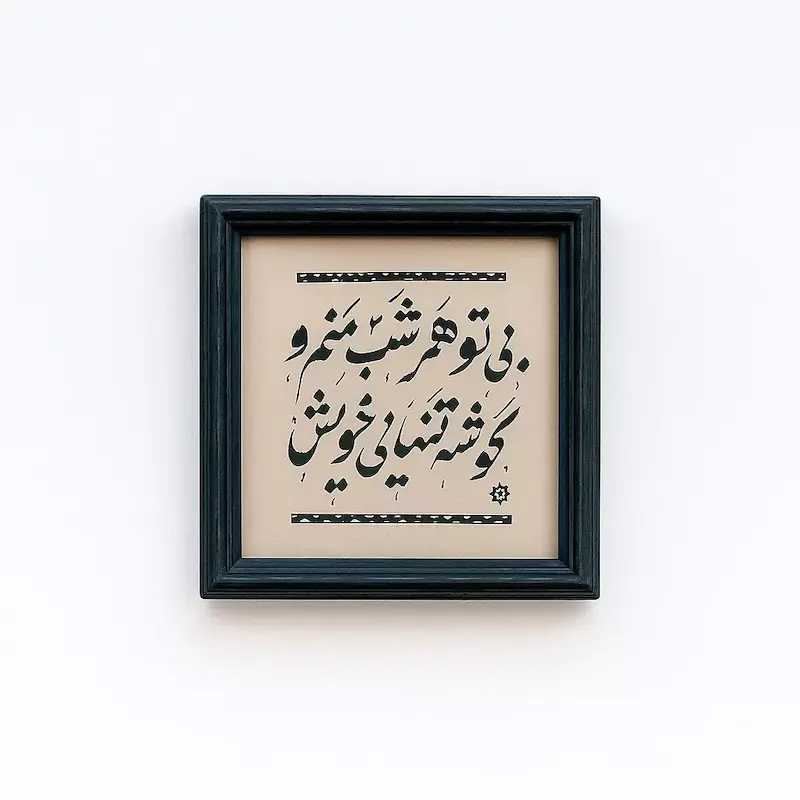 بی تو هر شب منم و
گوشه تنهایی خویش